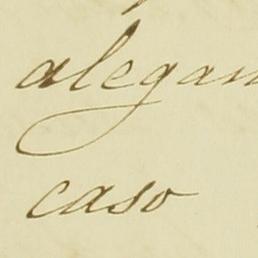 alegan
caso